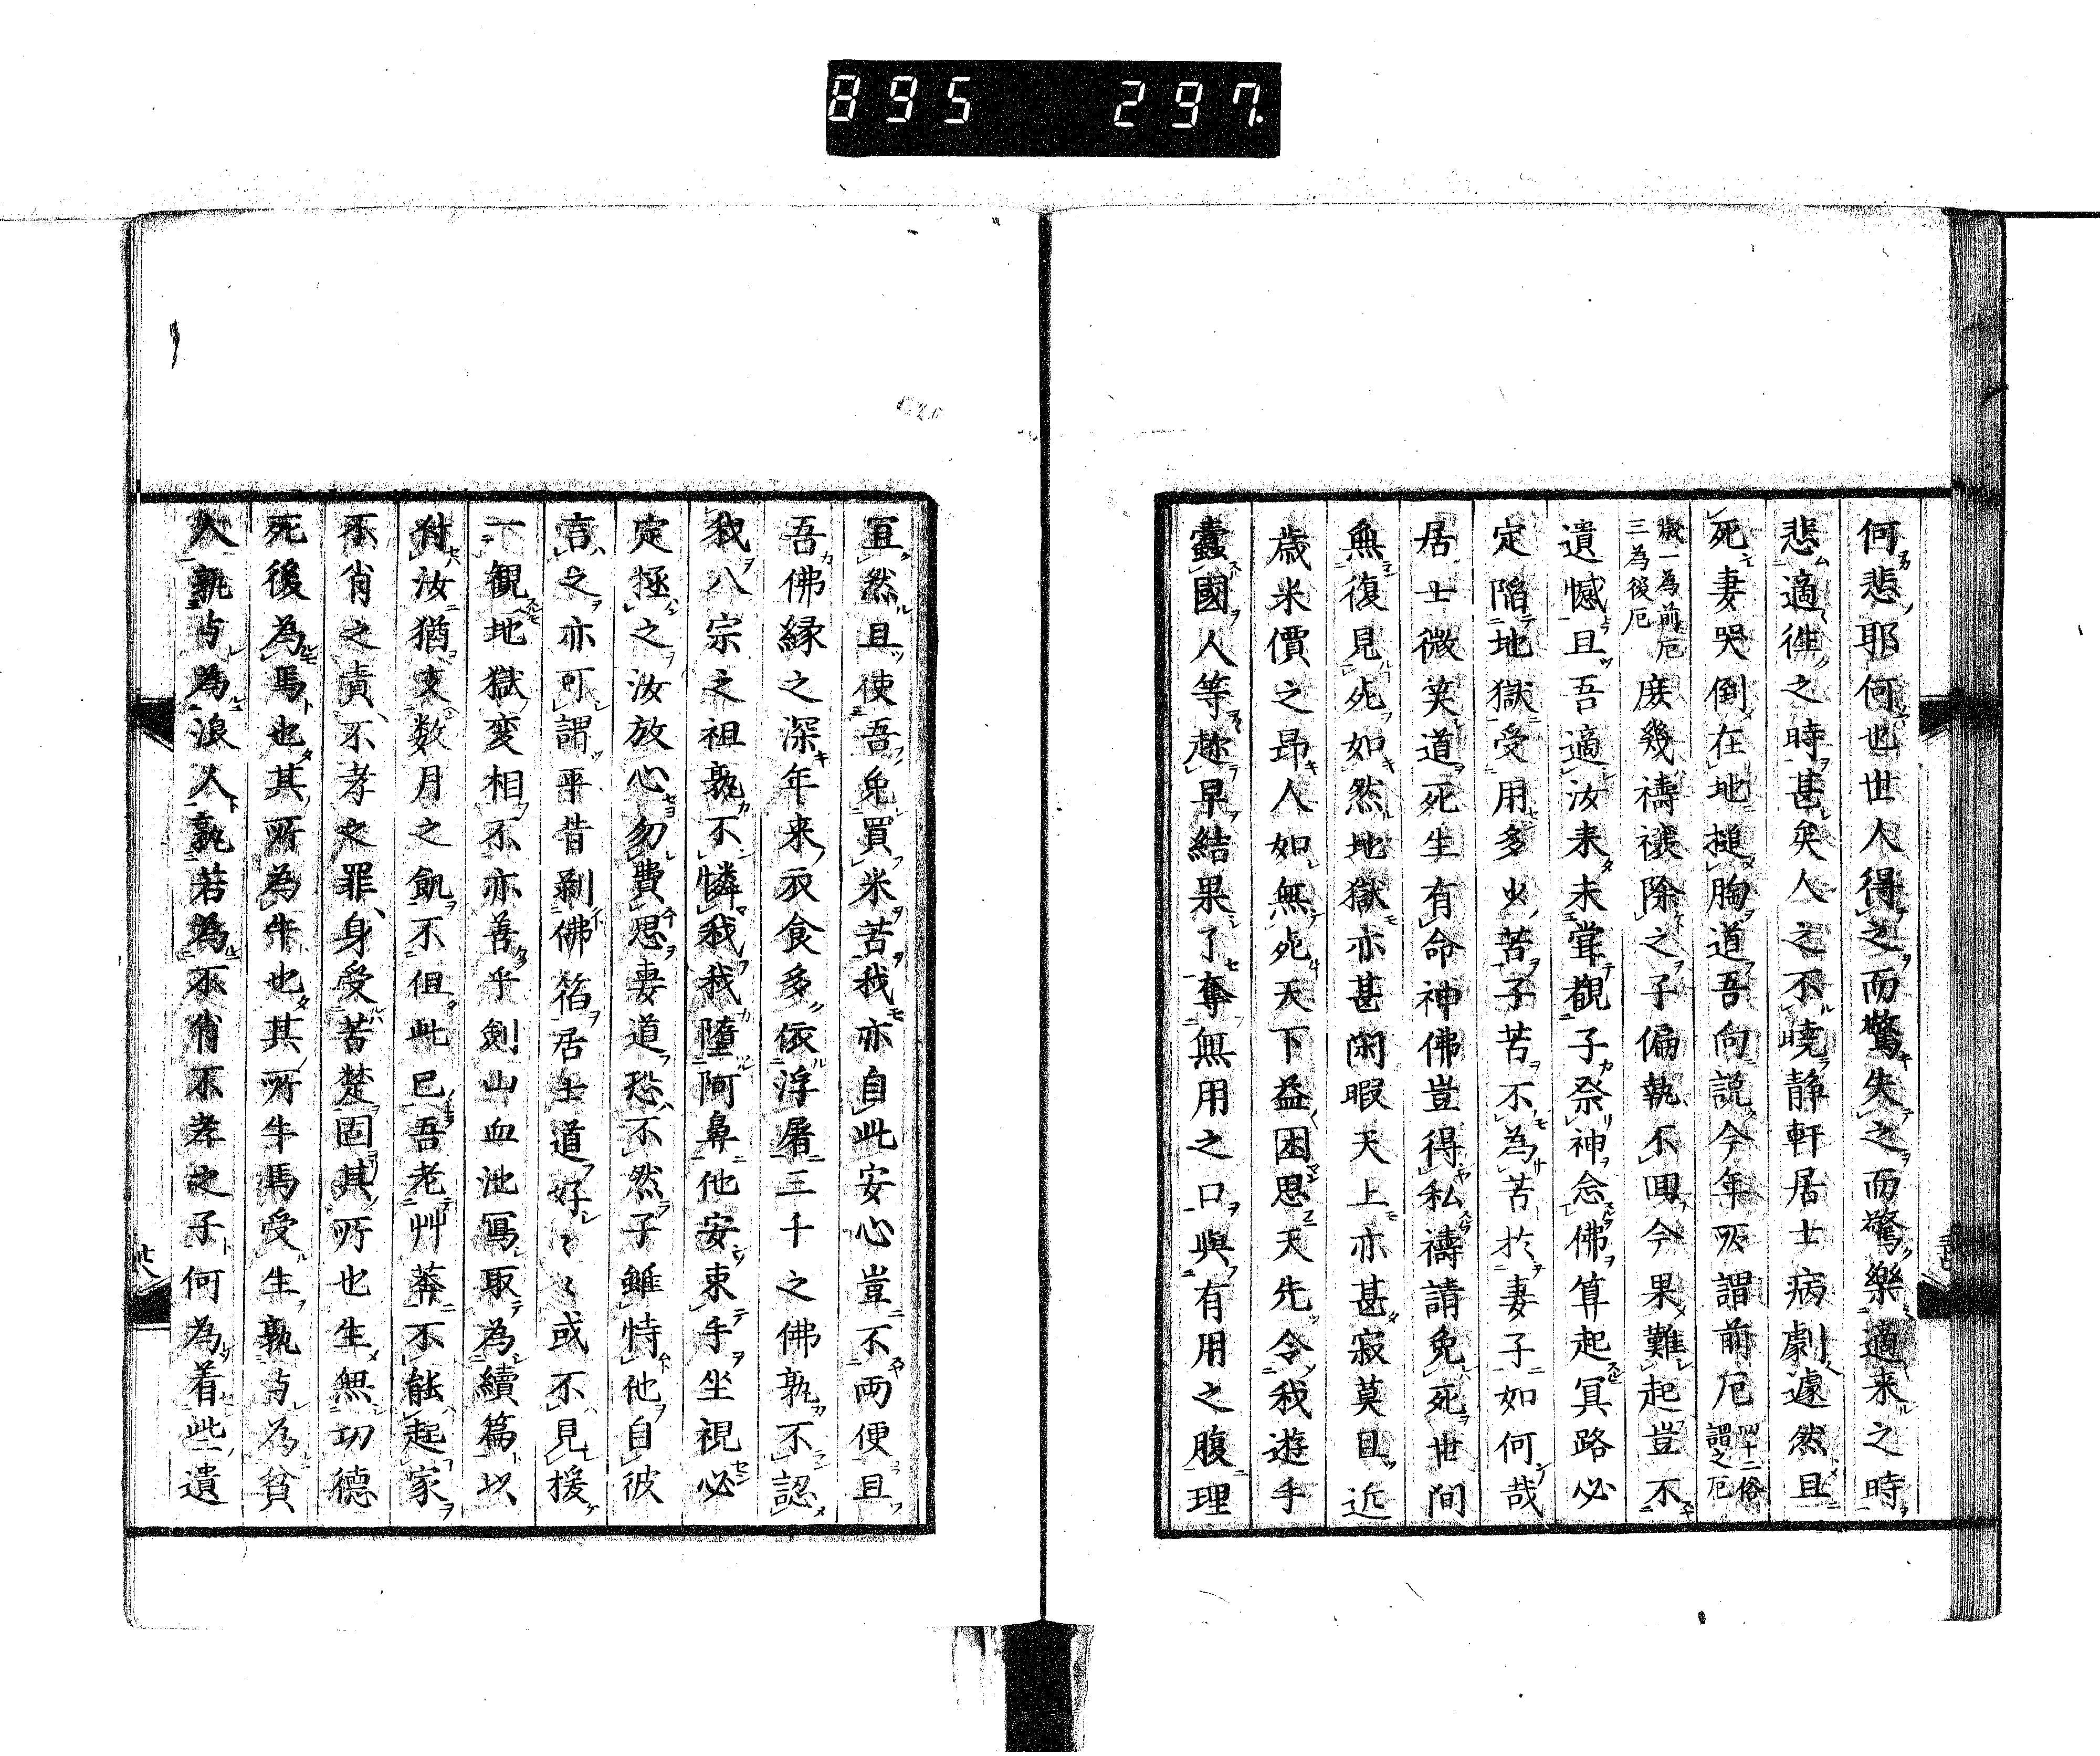 895 297
何悲耶何也世人得之而驚失之而驚樂適来之時
悲適徃之時甚矣人之不嶢静軒居士病劇遽然且
死妻哭倒在地搥胸道吾向説今年所謂前厄四十二俗謂之厄
歳一為前厄三為後厄庶幾禱禳除之子偏執不回今果難起豈不
遺憾且吾適汝来未甞覩子祭神念佛算起冥路必
定陷地獄受用多少苦子苦不為苦於妻子如何哉
居士微笑道死生有命神佛豈得私禱請免死世間
無復見死如然地獄亦甚閑暇天上亦甚寂莫且近
歳米價之昻人如無死天下益困思天先令我遊手
蠹國人等趂早結果了奪無用之口與有用之腹理
宜然且使吾免買米苦我亦自此安心豈不両便且
吾佛縁之深年来衣食多依浮屠三千之佛孰不認
我八宗之祖孰不憐我我墮阿鼻他安束手坐視必
定拯之汝放心勿費思妻道恐不然子雖恃他自彼
言之亦可謂平昔剥佛箔居士道好〻〻或不見援
一観地獄変相不亦善乎剣山血池冩取為續篇以
付汝猶支数月之飢不但此已吾老艸莾不能起家
不肖之責不孝之罪身受苦楚固其所也生無功德
死後為馬也其所為牛也其所牛馬受生孰与為貧
人孰与為浪人孰若為不肖不孝之子何為着些遺